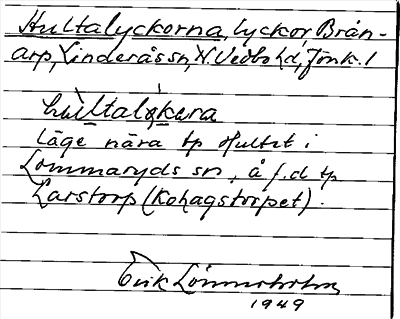 Hultalyckorna, lyckor, Brån-
arp, Linderås sn, N. Vedbo hd, Jönk. l
hultalykera
Läge nära tp Hultet i
Lommaryds sn, å f.d tp
Larstorp (Kohagstorpet).
Erik Lönnerholm
1949